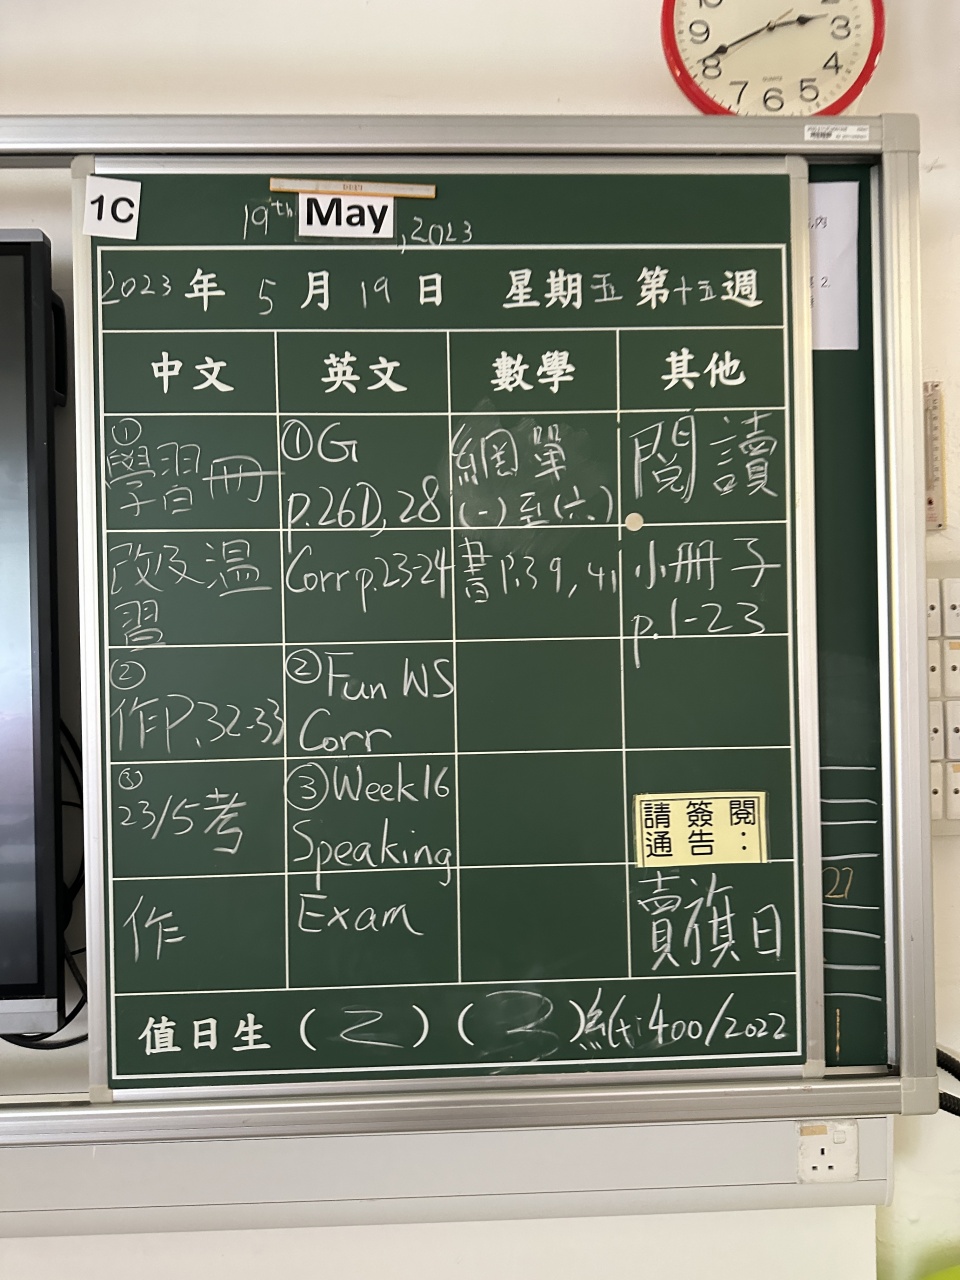 9 3
8 4
7 6 5
QUARTZ
1C
19th May, 2023
2023年 5月19日 星期五 第十五週
中文 英文 數學 其他
①
學習冊
改及溫
習
②
作P.32-33
③
23/5考
作
①G
p.26D, 28
Corr p.23-24
②Fun WS
Corr
③Week16
Speaking
Exam
網單
(一)至(六)
書P.39, 41
閱讀
小冊子
p.1-23
請簽閱
通告：
賣旗日
值日生 (2) (3) 400/2022
內
2.
27